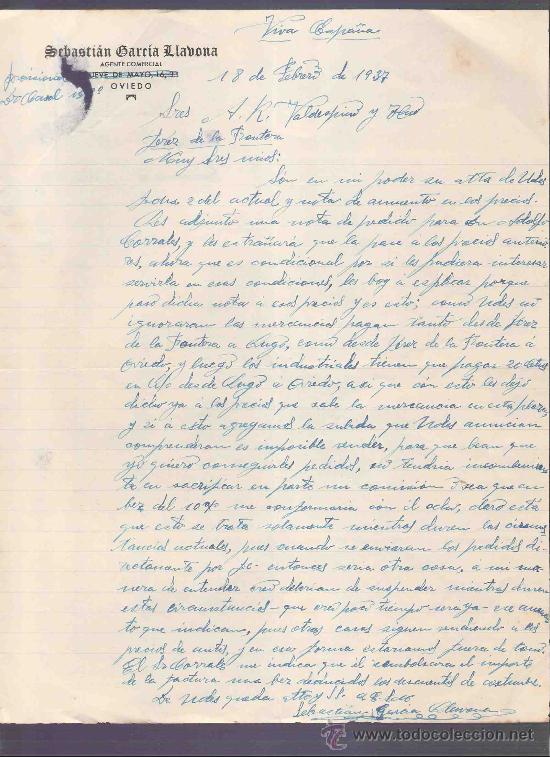 Viva España
Sebastián García Llavona
AGENTE COMERCIAL
NUEVE DE MAYO, 16, 3º
OVIEDO
18 de Febrero de 1937
Sres A. R. Valdespino y Hno
Jerez de la Frontera
Muy Sres mios:
Son en mi poder su atta de Udes
fecha 2 del actual, y nota de aumento en los precios.
Les adjunto una nota de pedido para Dn Adolfo
Corrales, y les extrañara que la pase a los precios anterio
res, ahora que es condicional por si les pudiera interesar
servirla en esas condiciones, les boy a explicar porque
paso dicha nota a esos precios y es esto; como Udes no
ignoraran las mercancias pagan tanto desde Jerez
de la Frontera a Lugo, como desde Jerez de la Frontera á
Oviedo, y luego los industriales tienen que pagar 20 cts
en Kilo desde Lugo a Oviedo, asi que con esto les dejo
dicho ya á los precios que sale la mercancia en esta plaza,
y si á esto agregamos la subida que Udes anuncian
comprenderan es imposible vender, para que bean que
yo quiero conseguirles pedidos, no tendria inconbenien
te en sacrificar en parte mi comision ó sea que en
bez del 10% me conformaria con il ocho, claro esta
que esto se trata solamente mientras duren las circuns
tancias actuales, pues cuando se enviaran los pedidos di
rectamente por fc. entonces seria otra cosa, a mi ma
nera de entender creo deberian de suspender mientras duren
estas circunstancias - que creo poco tiempo sera ya - ese aumen
to que indican, pues otras casas siguen vendiendo a los
precios de antes, y en esa forma estariamos fuera de
El Sr Corrales me indica que él reembolsara el importe
de la factura una bez deducidos los descuentos de costumbre.
De Udes queda atto y S.S.
Sebastian Garcia Llavona
todocoleccion